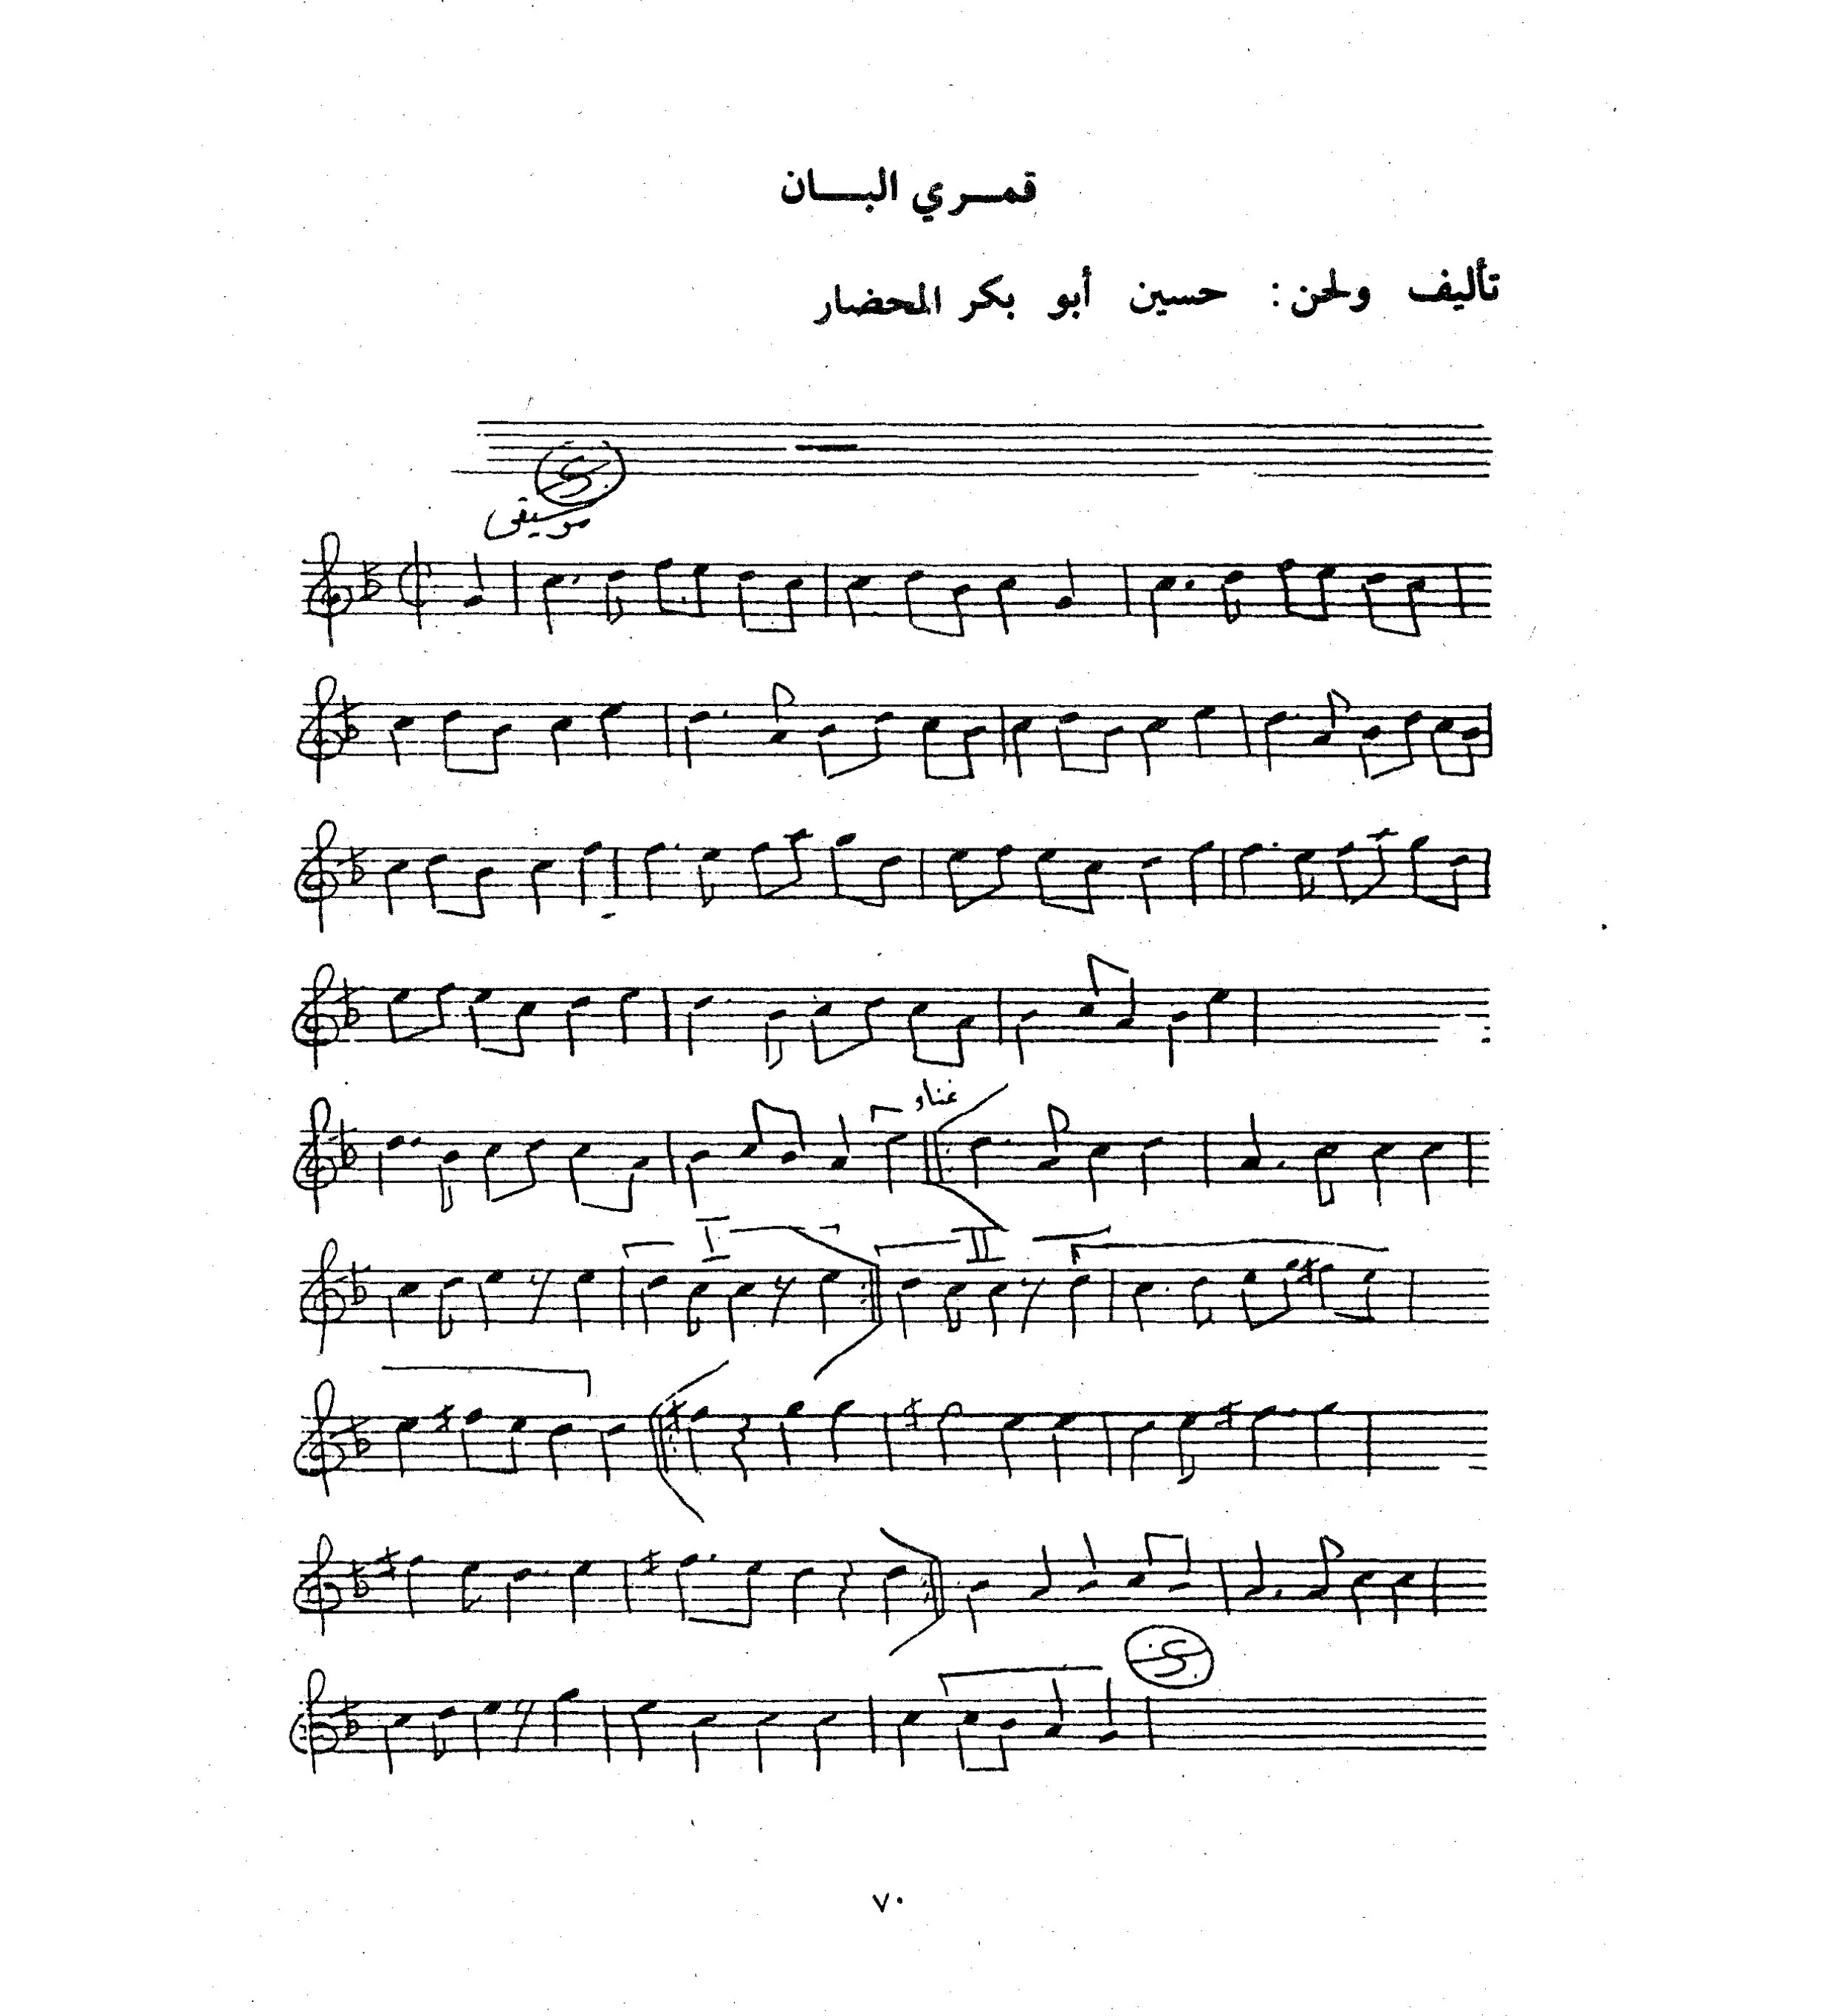 قمـــري البـــان
تأليف ولحن: حسين أبو بكر المحضار
موسيقى
غناء
I II
٧٠